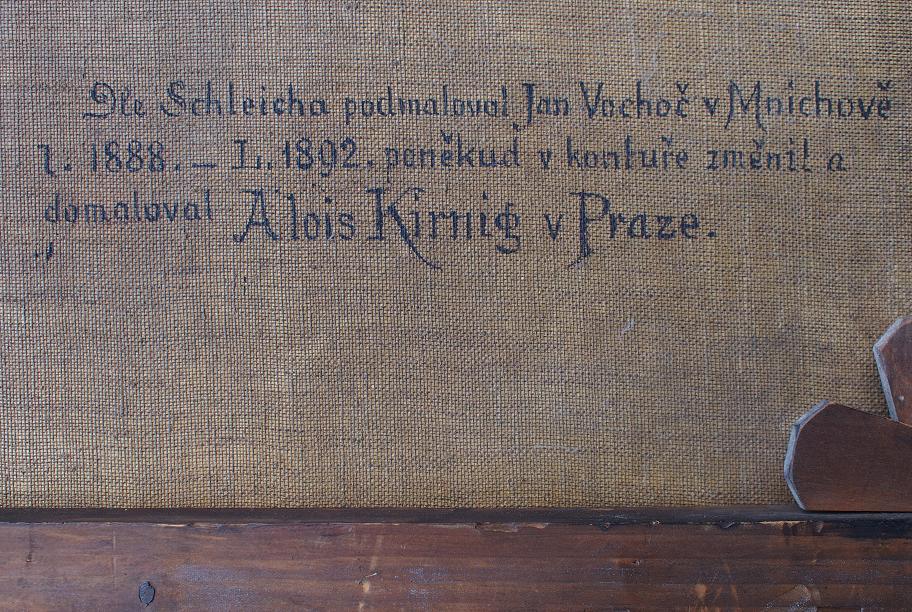 Dle Schleicha podmaloval Jan Vochoč v Mnichově
l. 1888. – L. 1892. poněkud v kontuře změnil a
domaloval Alois Kirnig v Praze.